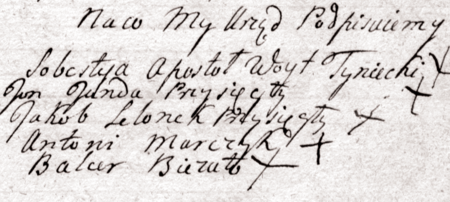 Naco My Urząd Podpisuiemy
Sobestyą Apostoł Woyt Tyniecki X
Jan Janda Przysięzły X
Jakób Lelonek Przysięzły X
Antoni Marczyk X
Balcer Bierat X